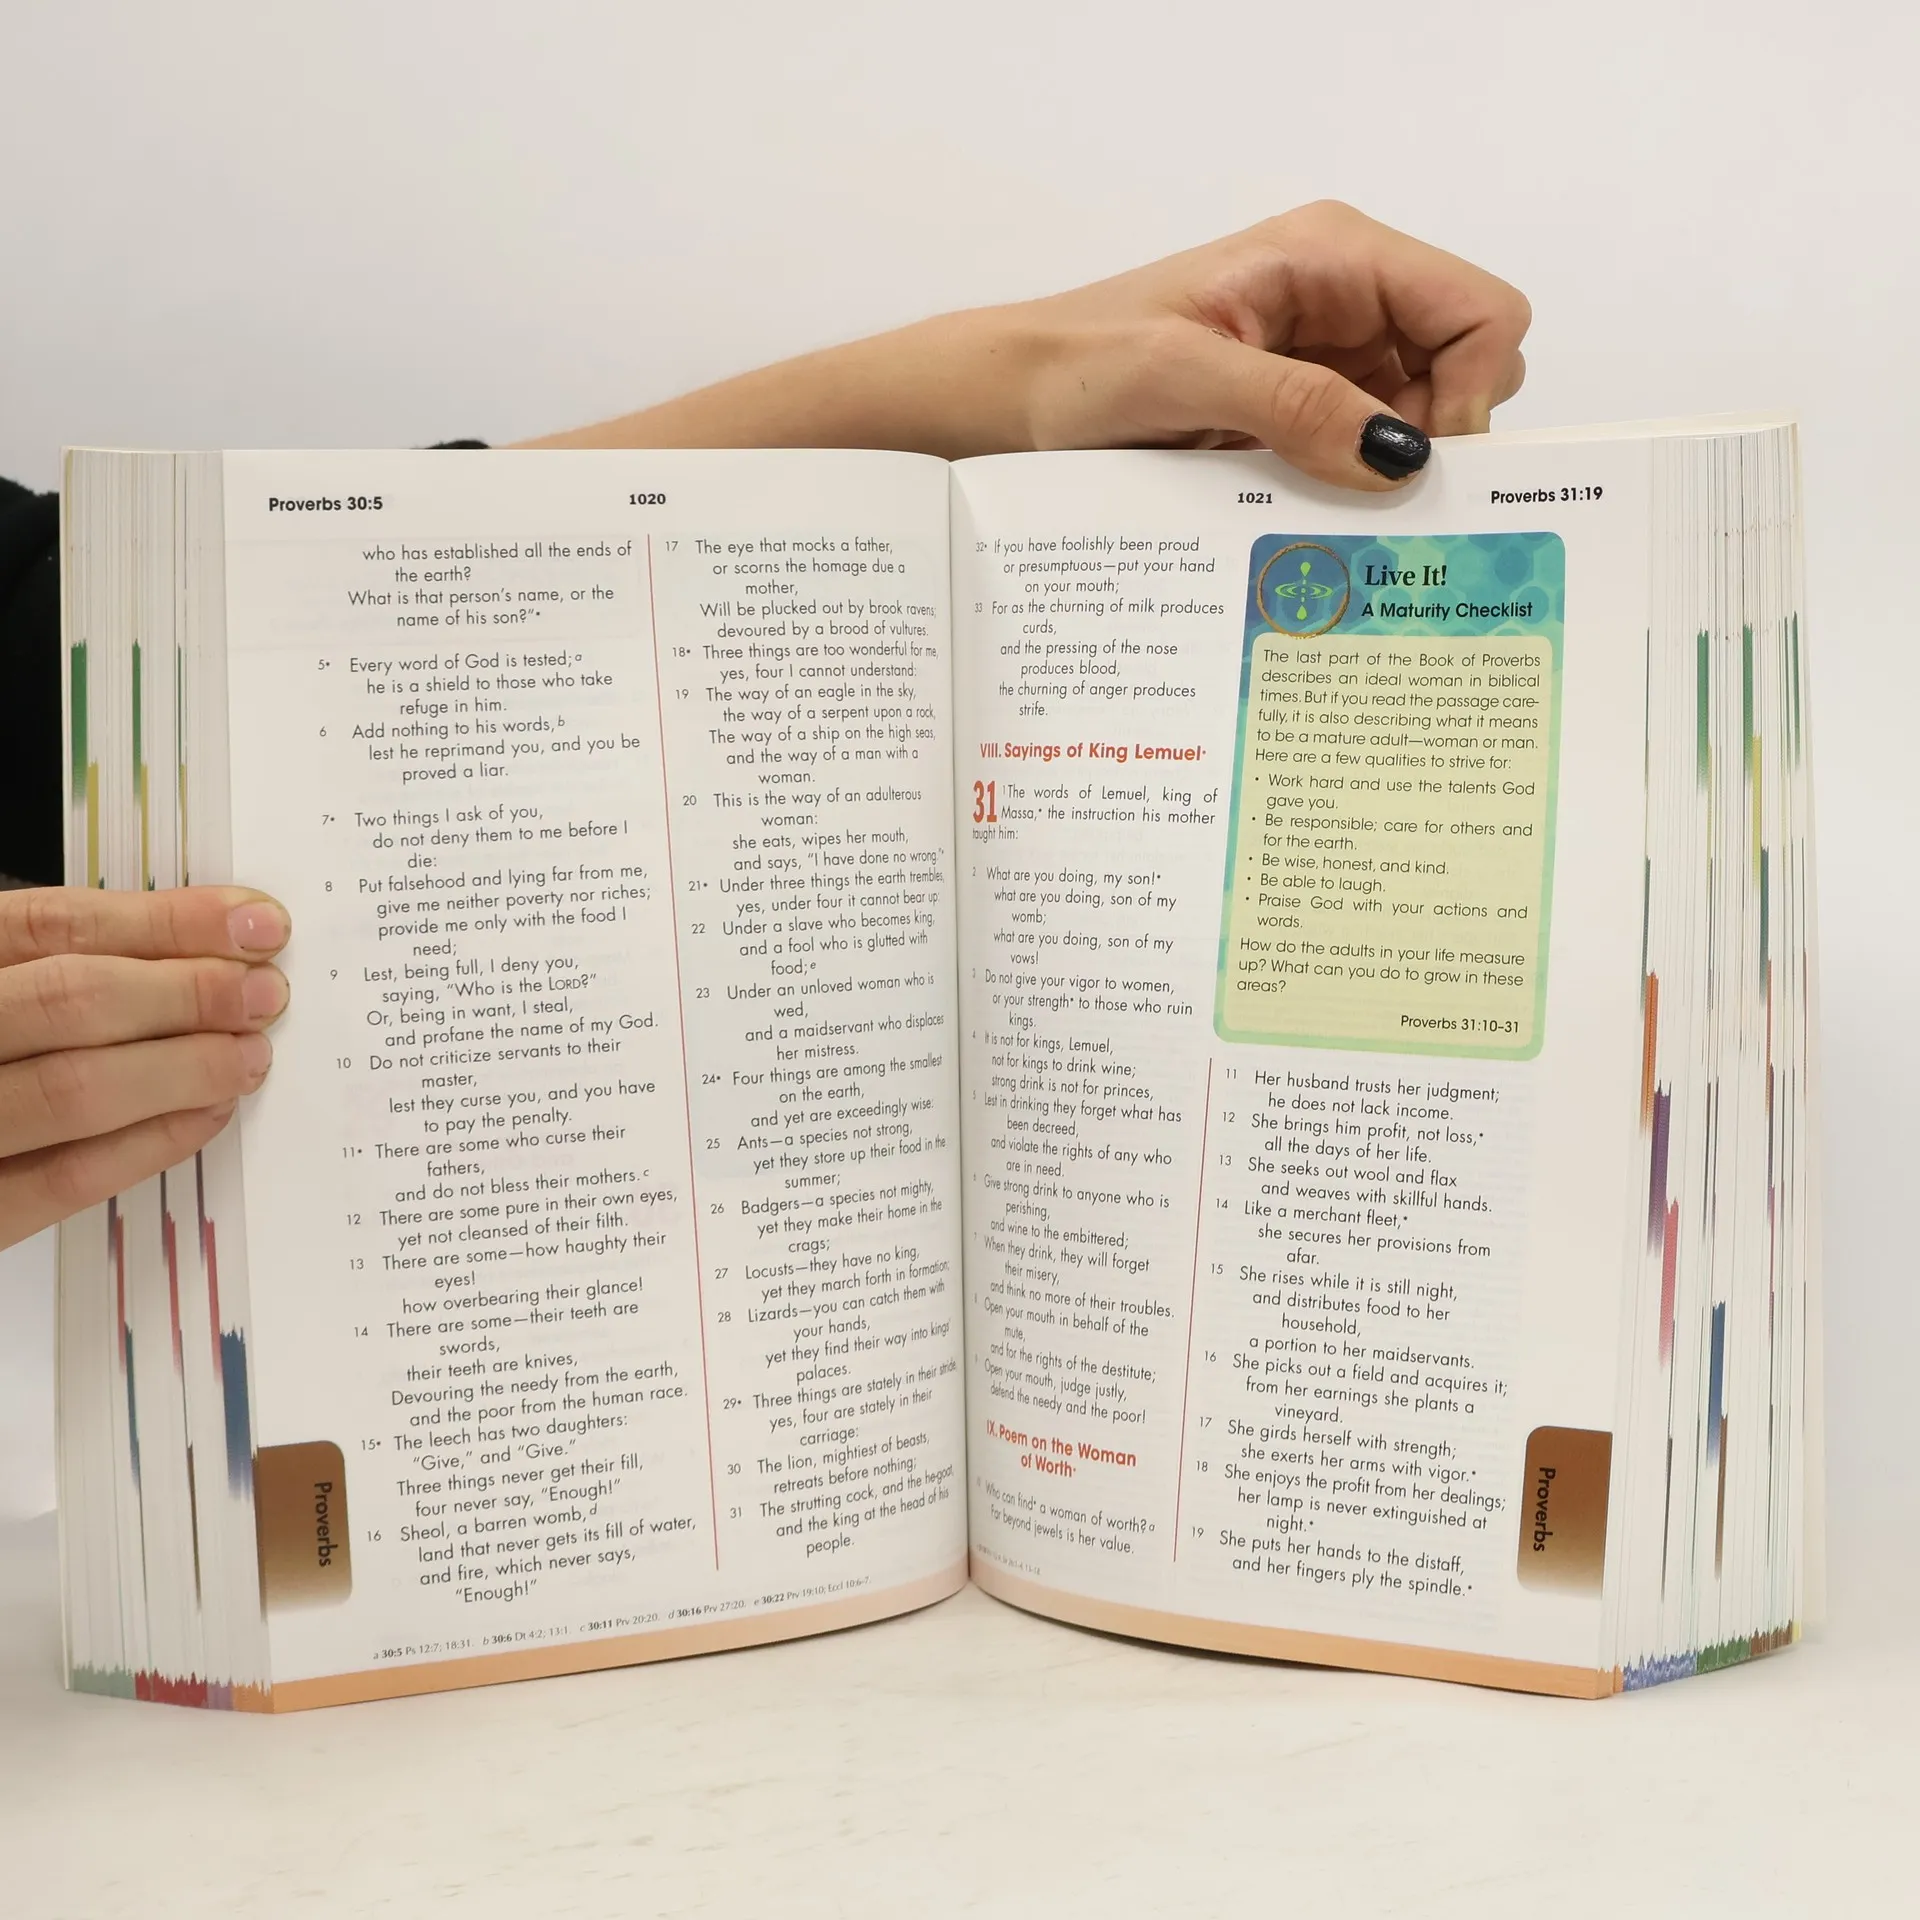 Proverbs 30:5
1020
who has established all the ends of
the earth?
What is that person's name, or the
name of his son?"•
5• Every word of God is tested;a
he is a shield to those who take
refuge in him.
6 Add nothing to his words,b
lest he reprimand you, and you be
proved a liar.
7• Two things I ask of you,
do not deny them to me before I
die:
8 Put falsehood and lying far from me,
give me neither poverty nor riches;
provide me only with the food I
need;
9 Lest, being full, I deny you,
saying, "Who is the LORD?"
Or, being in want, I steal,
and profane the name of my God.
10 Do not criticize servants to their
master,
lest they curse you, and you have
to pay the penalty.
11• There are some who curse their
fathers,
and do not bless their mothers.c
12 There are some pure in their own eyes,
yet not cleansed of their filth.
13 There are some—how haughty their
eyes!
how overbearing their glance!
14 There are some—their teeth are
swords,
their teeth are knives,
Devouring the needy from the earth,
and the poor from the human race.
15• The leech has two daughters:
"Give," and "Give."
Three things never get their fill,
four never say, "Enough!"
16 Sheol, a barren womb,d
land that never gets its fill of water,
and fire, which never says,
"Enough!"
17 The eye that mocks a father,
or scorns the homage due a
mother,
Will be plucked out by brook ravens;
devoured by a brood of vultures.
18• Three things are too wonderful for me,
yes, four I cannot understand:
19 The way of an eagle in the sky,
the way of a serpent upon a rock,
The way of a ship on the high seas,
and the way of a man with a
woman.
20 This is the way of an adulterous
woman:
she eats, wipes her mouth,
and says, "I have done no wrong."•
21• Under three things the earth trembles,
yes, under four it cannot bear up:
22 Under a slave who becomes king,
and a fool who is glutted with
food;e
23 Under an unloved woman who is
wed,
and a maidservant who displaces
her mistress.
24• Four things are among the smallest
on the earth,
and yet are exceedingly wise:
25 Ants—a species not strong,
yet they store up their food in the
summer;
26 Badgers—a species not mighty,
yet they make their home in the
crags;
27 Locusts—they have no king,
yet they march forth in formation;
28 Lizards—you can catch them with
your hands,
yet they find their way into kings'
palaces.
29• Three things are stately in their stride,
yes, four are stately in their
carriage:
30 The lion, mightiest of beasts,
retreats before nothing;
31 The strutting cock, and the he-goat,
and the king at the head of his
people.
a 30:5 Ps 12:7; 18:31. b 30:6 Dt 4:2; 13:1. c 30:11 Prv 20:20. d 30:16 Prv 27:20. e 30:22 Prv 19:10; Eccl 10:6–7.
Proverbs
1021
Proverbs 31:19
32• If you have foolishly been proud
or presumptuous—put your hand
on your mouth;
33 For as the churning of milk produces
curds,
and the pressing of the nose
produces blood,
the churning of anger produces
strife.
VIII. Sayings of King Lemuel•
31 1The words of Lemuel, king of
Massa,• the instruction his mother
taught him:
2 What are you doing, my son!•
what are you doing, son of my
womb;
what are you doing, son of my
vows!
3 Do not give your vigor to women,
or your strength• to those who ruin
kings.
4 It is not for kings, Lemuel,
not for kings to drink wine;
strong drink is not for princes,
5 Lest in drinking they forget what has
been decreed,
and violate the rights of any who
are in need.
6 Give strong drink to anyone who is
perishing,
and wine to the embittered;
7 When they drink, they will forget
their misery,
and think no more of their troubles.
8 Open your mouth in behalf of the
mute,
and for the rights of the destitute;
9 Open your mouth, judge justly,
defend the needy and the poor!
IX. Poem on the Woman
of Worth•
10 Who can find• a woman of worth?a
Far beyond jewels is her value.
Live It!
A Maturity Checklist
The last part of the Book of Proverbs
describes an ideal woman in biblical
times. But if you read the passage care-
fully, it is also describing what it means
to be a mature adult—woman or man.
Here are a few qualities to strive for:
• Work hard and use the talents God
gave you.
• Be responsible; care for others and
for the earth.
• Be wise, honest, and kind.
• Be able to laugh.
• Praise God with your actions and
words.
How do the adults in your life measure
up? What can you do to grow in these
areas?
Proverbs 31:10–31
11 Her husband trusts her judgment;
he does not lack income.
12 She brings him profit, not loss,•
all the days of her life.
13 She seeks out wool and flax
and weaves with skillful hands.
14 Like a merchant fleet,•
she secures her provisions from
afar.
15 She rises while it is still night,
and distributes food to her
household,
a portion to her maidservants.
16 She picks out a field and acquires it;
from her earnings she plants a
vineyard.
17 She girds herself with strength;
she exerts her arms with vigor.•
18 She enjoys the profit from her dealings;
her lamp is never extinguished at
night.•
19 She puts her hands to the distaff,
and her fingers ply the spindle.•
Proverbs